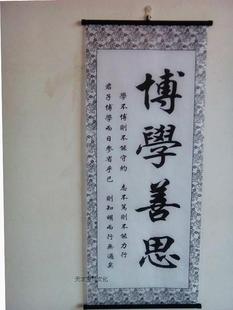 博學善思
學不博則不能守約 志不篤則不能力行
君子博學而日參省乎己 則知明而行無過矣
文化